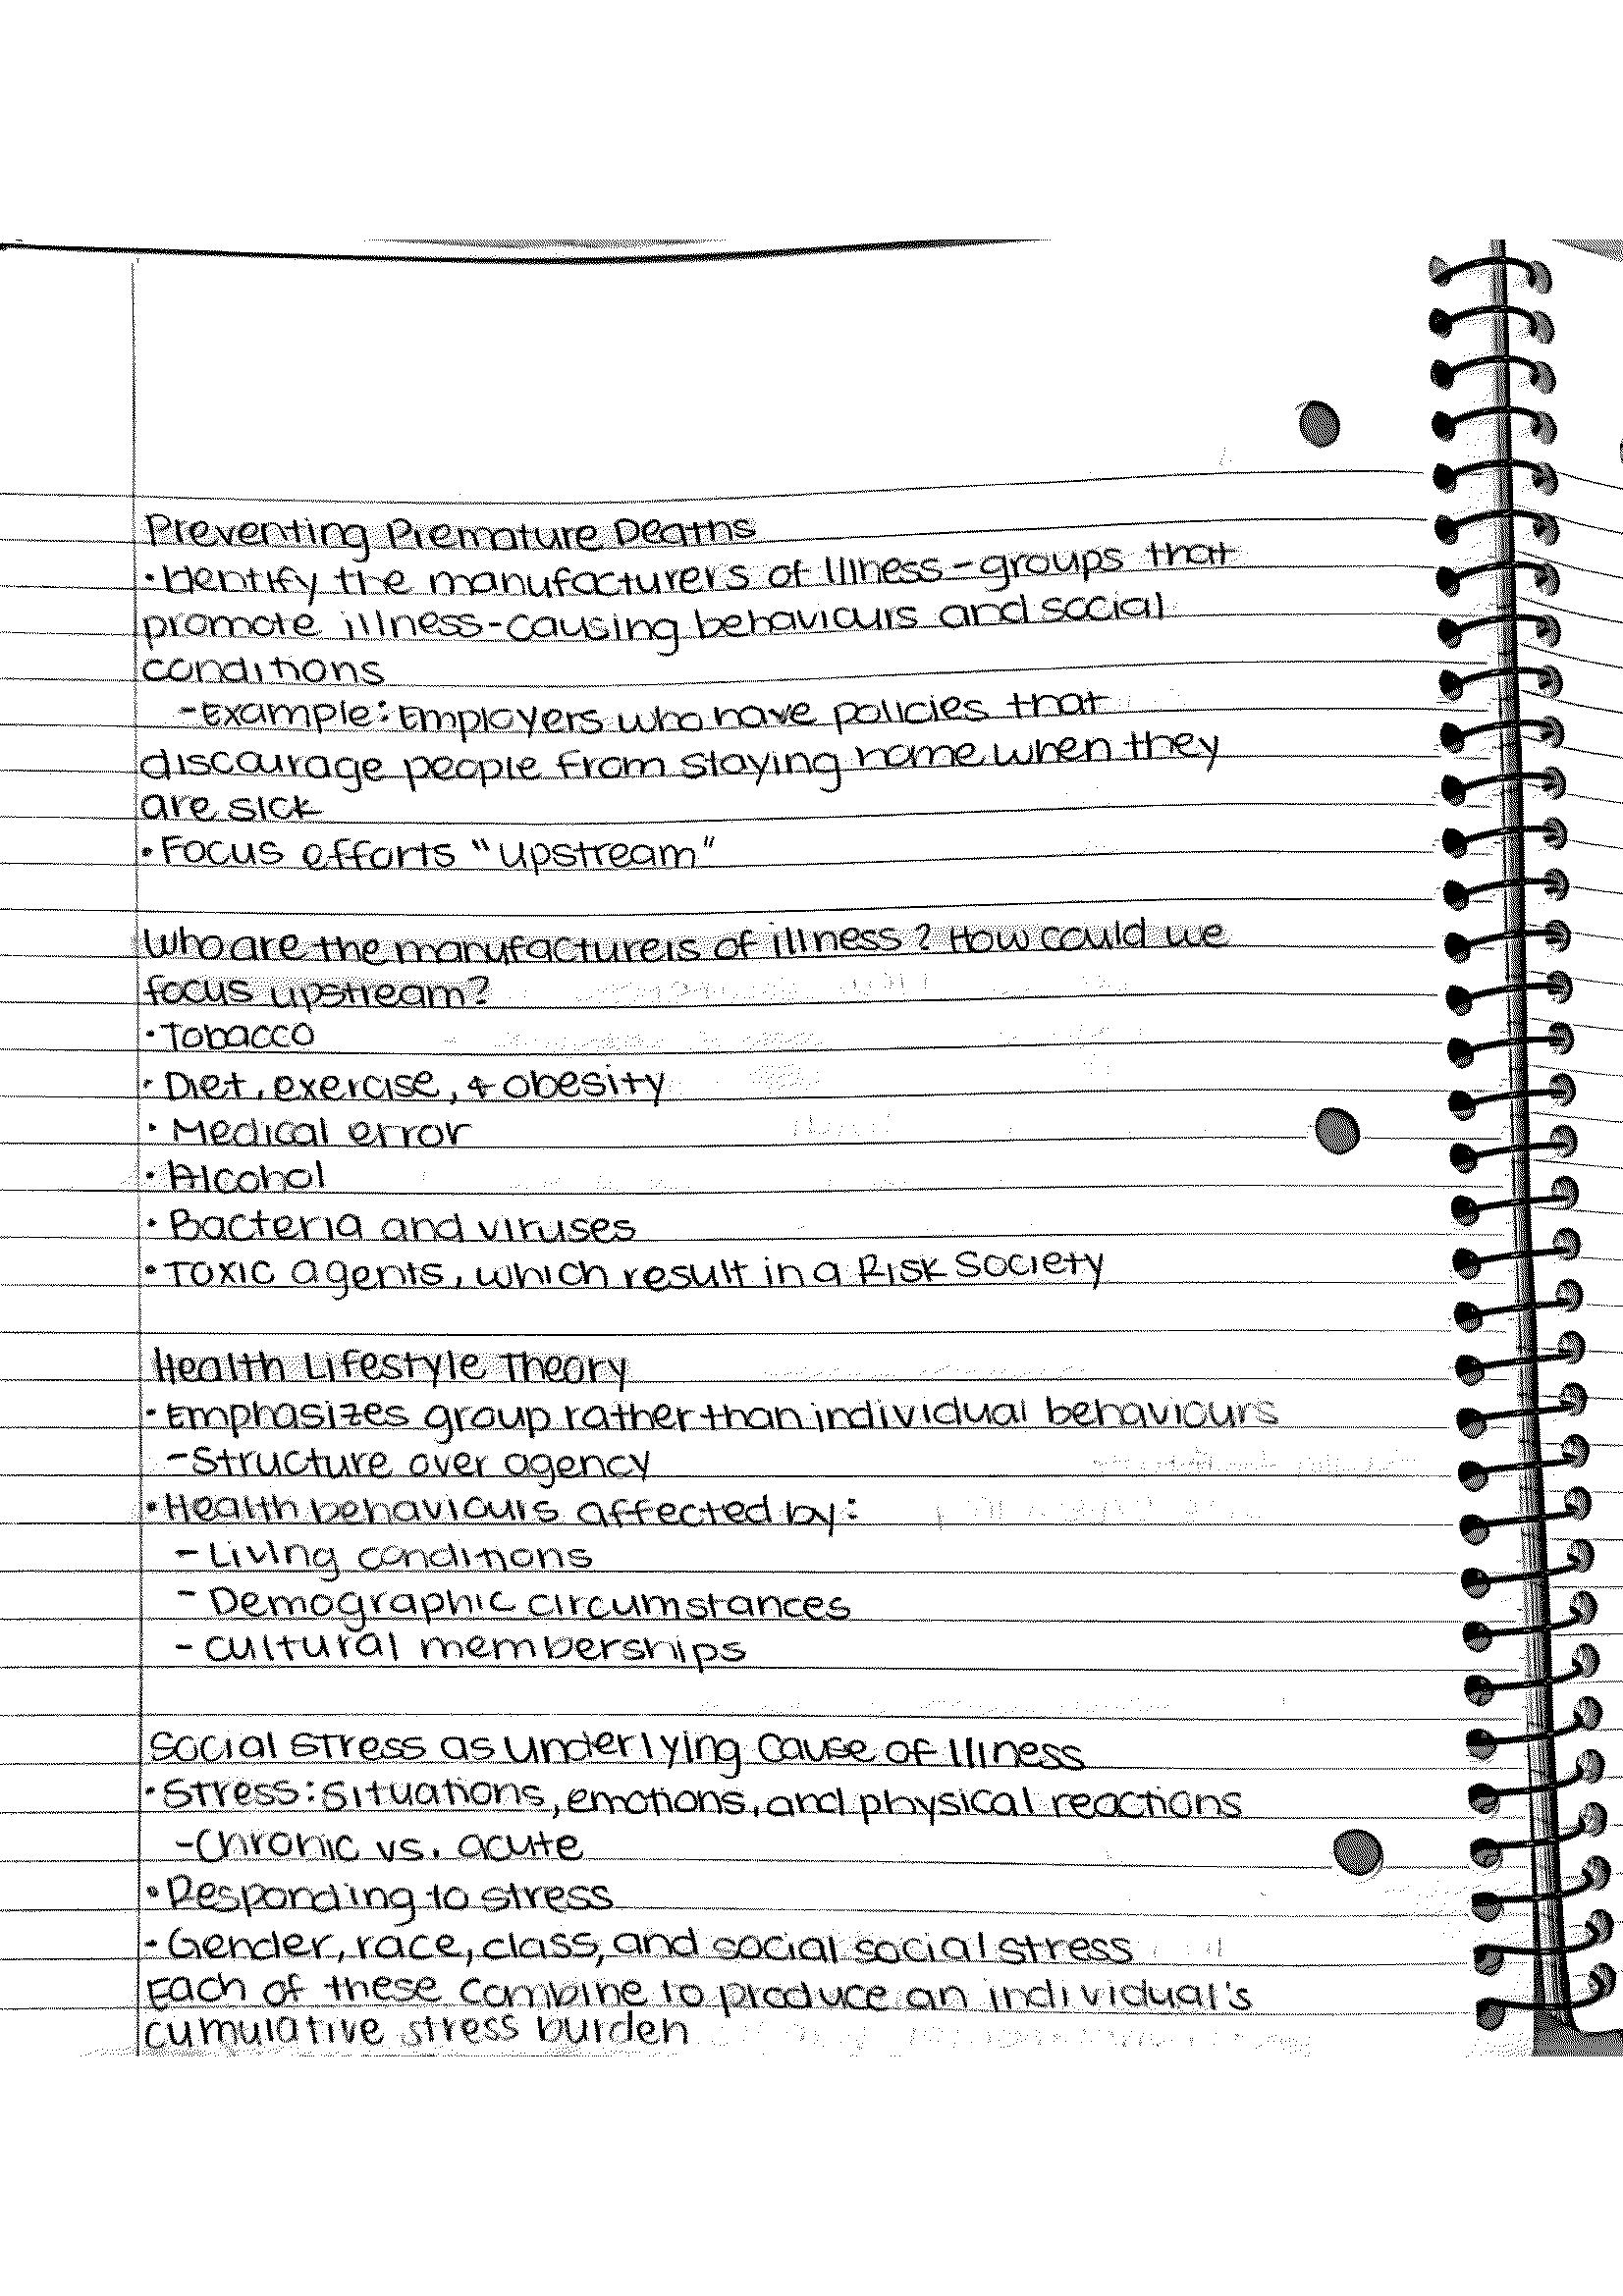 Preventing Premature Deaths
• Identify the manufacturers of Illness - groups that
promote illness-causing behaviours and social
conditions
- Example: Employers who have policies that
discourage people from staying home when they
are sick
• Focus efforts "upstream"
Who are the manufacturers of illness? How could we
focus upstream?
• Tobacco
• Diet, exercise, & obesity
• Medical error
• Alcohol
• Bacteria and viruses
• Toxic agents, which result in a Risk Society
Health Lifestyle Theory
• Emphasizes group rather than individual behaviours
- Structure over agency
• Health behaviours affected by:
- Living conditions
- Demographic circumstances
- Cultural memberships
Social Stress as Underlying Cause of Illness
• Stress: Situations, emotions, and physical reactions
- Chronic vs. acute
• Responding to stress
• Gender, race, class, and social social stress
Each of these combine to produce an individual's
cumulative stress burden